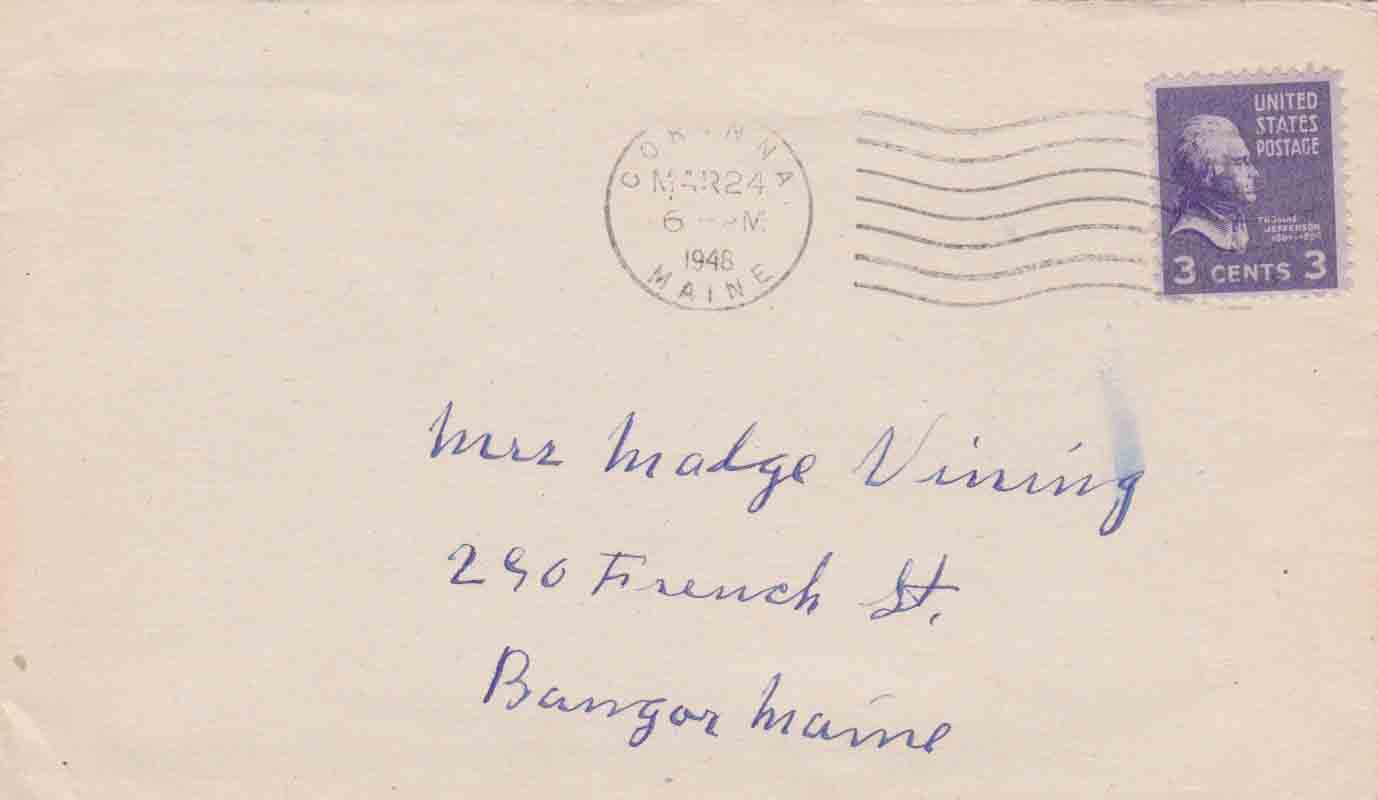 CORINNA
MAR 24
6 PM
1948
MAINE
UNITED
STATES
POSTAGE
THOMAS
JEFFERSON
3 CENTS 3
Mrs Madge Vining
290 French St.
Bangor Maine